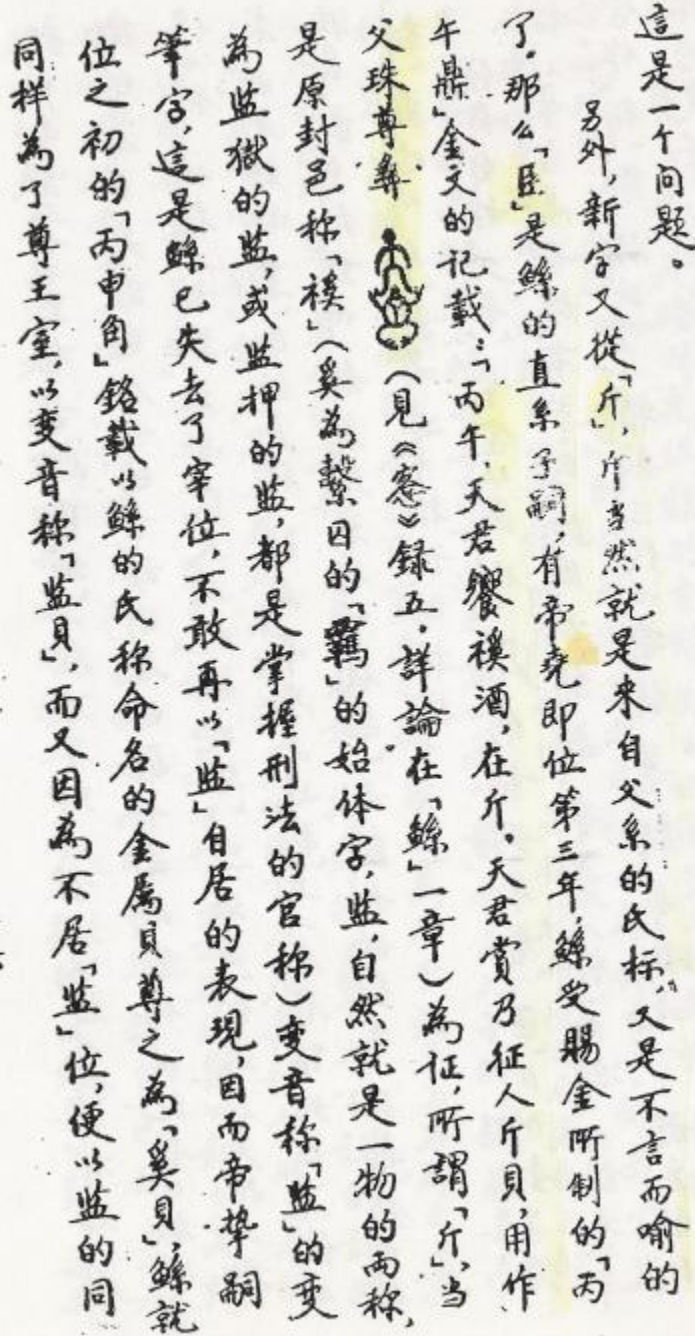 這是一个问题。
另外,新字又從「斤」,斤当然就是来自父系的氏标,又是不言而喻的
了。那么「臣」是鲧的直系子嗣,有帝尧即位第三年,鲧受賜金所制的「丙
午鼎」金文的记載:「丙午,天君饗禩酒,在斤。天君赏乃征人斤貝,用作
父珠尊彝(見《愙》録五。詳論在「鲧」一章)為证,所謂「斤」,当
是原封邑称「禩」(奚為繫囚的「羈」的始体字,监,自然就是一物的两称,
為监獄的监,或监押的监,都是掌握刑法的官称)变音称「监」的变
筆字,這是鲧已失去了宰位,不敢再以「监」自居的表現,因而帝挚嗣
位之初的「丙申角」銘載以鲧的氏称命名的金属貝尊之為「奚貝」,鲧就
同样為了尊王室,以变音称「监貝」,而又因為不居「监」位,便以监的同